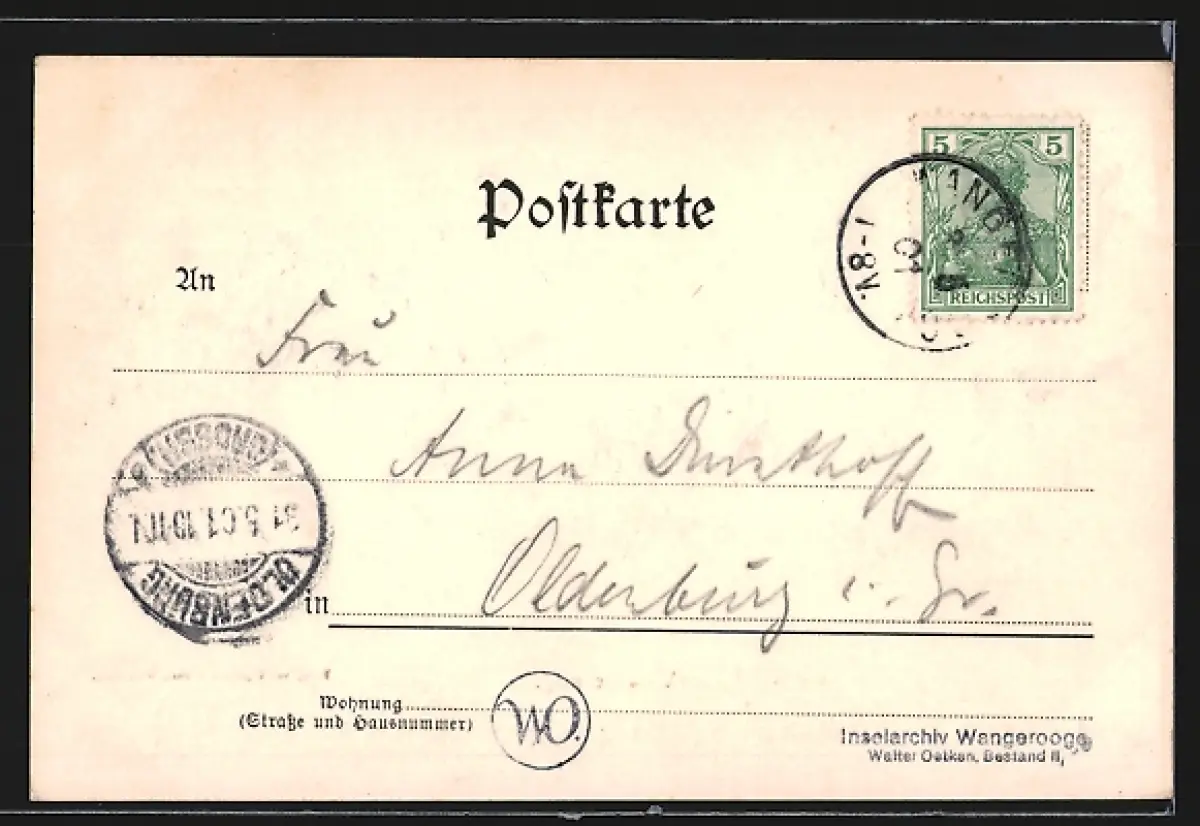 5 5
REICHSPOST
WANGE
7-8N.
Postkarte
An
Frau
Anna
Oldenburg i. Gr.
in
OLDENBURG
(GROSSH)
31.5.01.10-11N.
Wohnung
(Straße und Hausnummer)
WO.
Inselarchiv Wangerooge
Walter Oetken, Bestand II,